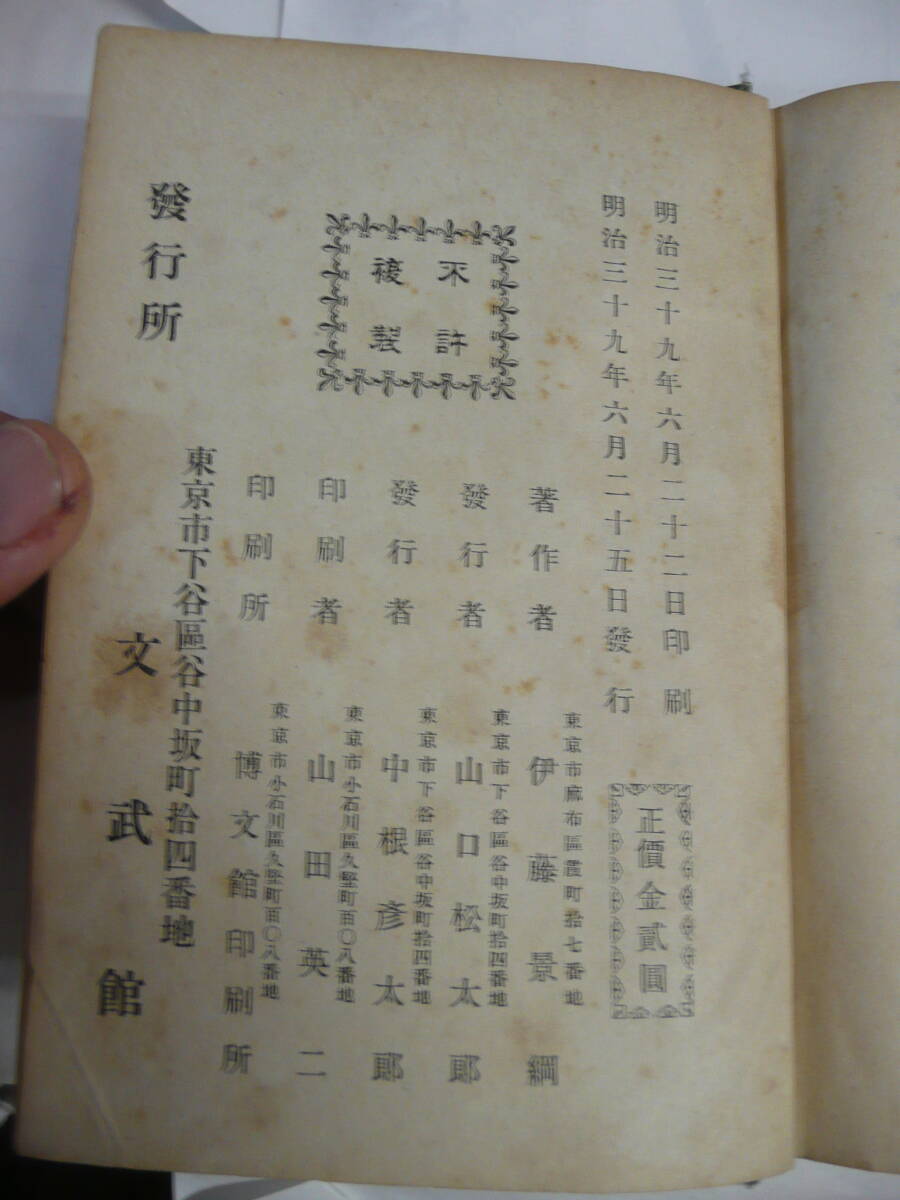 明治三十九年六月二十二日印刷
明治三十九年六月二十五日發行
正價金貳圓
不許
複製
著作者
東京市麻布區霞町拾七番地
伊藤景綱
發行者
東京市下谷區谷中坂町拾四番地
山口松太郎
發行者
東京市下谷區谷中坂町拾四番地
中根彥太郎
印刷者
東京市小石川區久堅町百〇八番地
山田英二
印刷所
東京市小石川區久堅町百〇八番地
博文館印刷所
發行所
東京市下谷區谷中坂町拾四番地
文武館